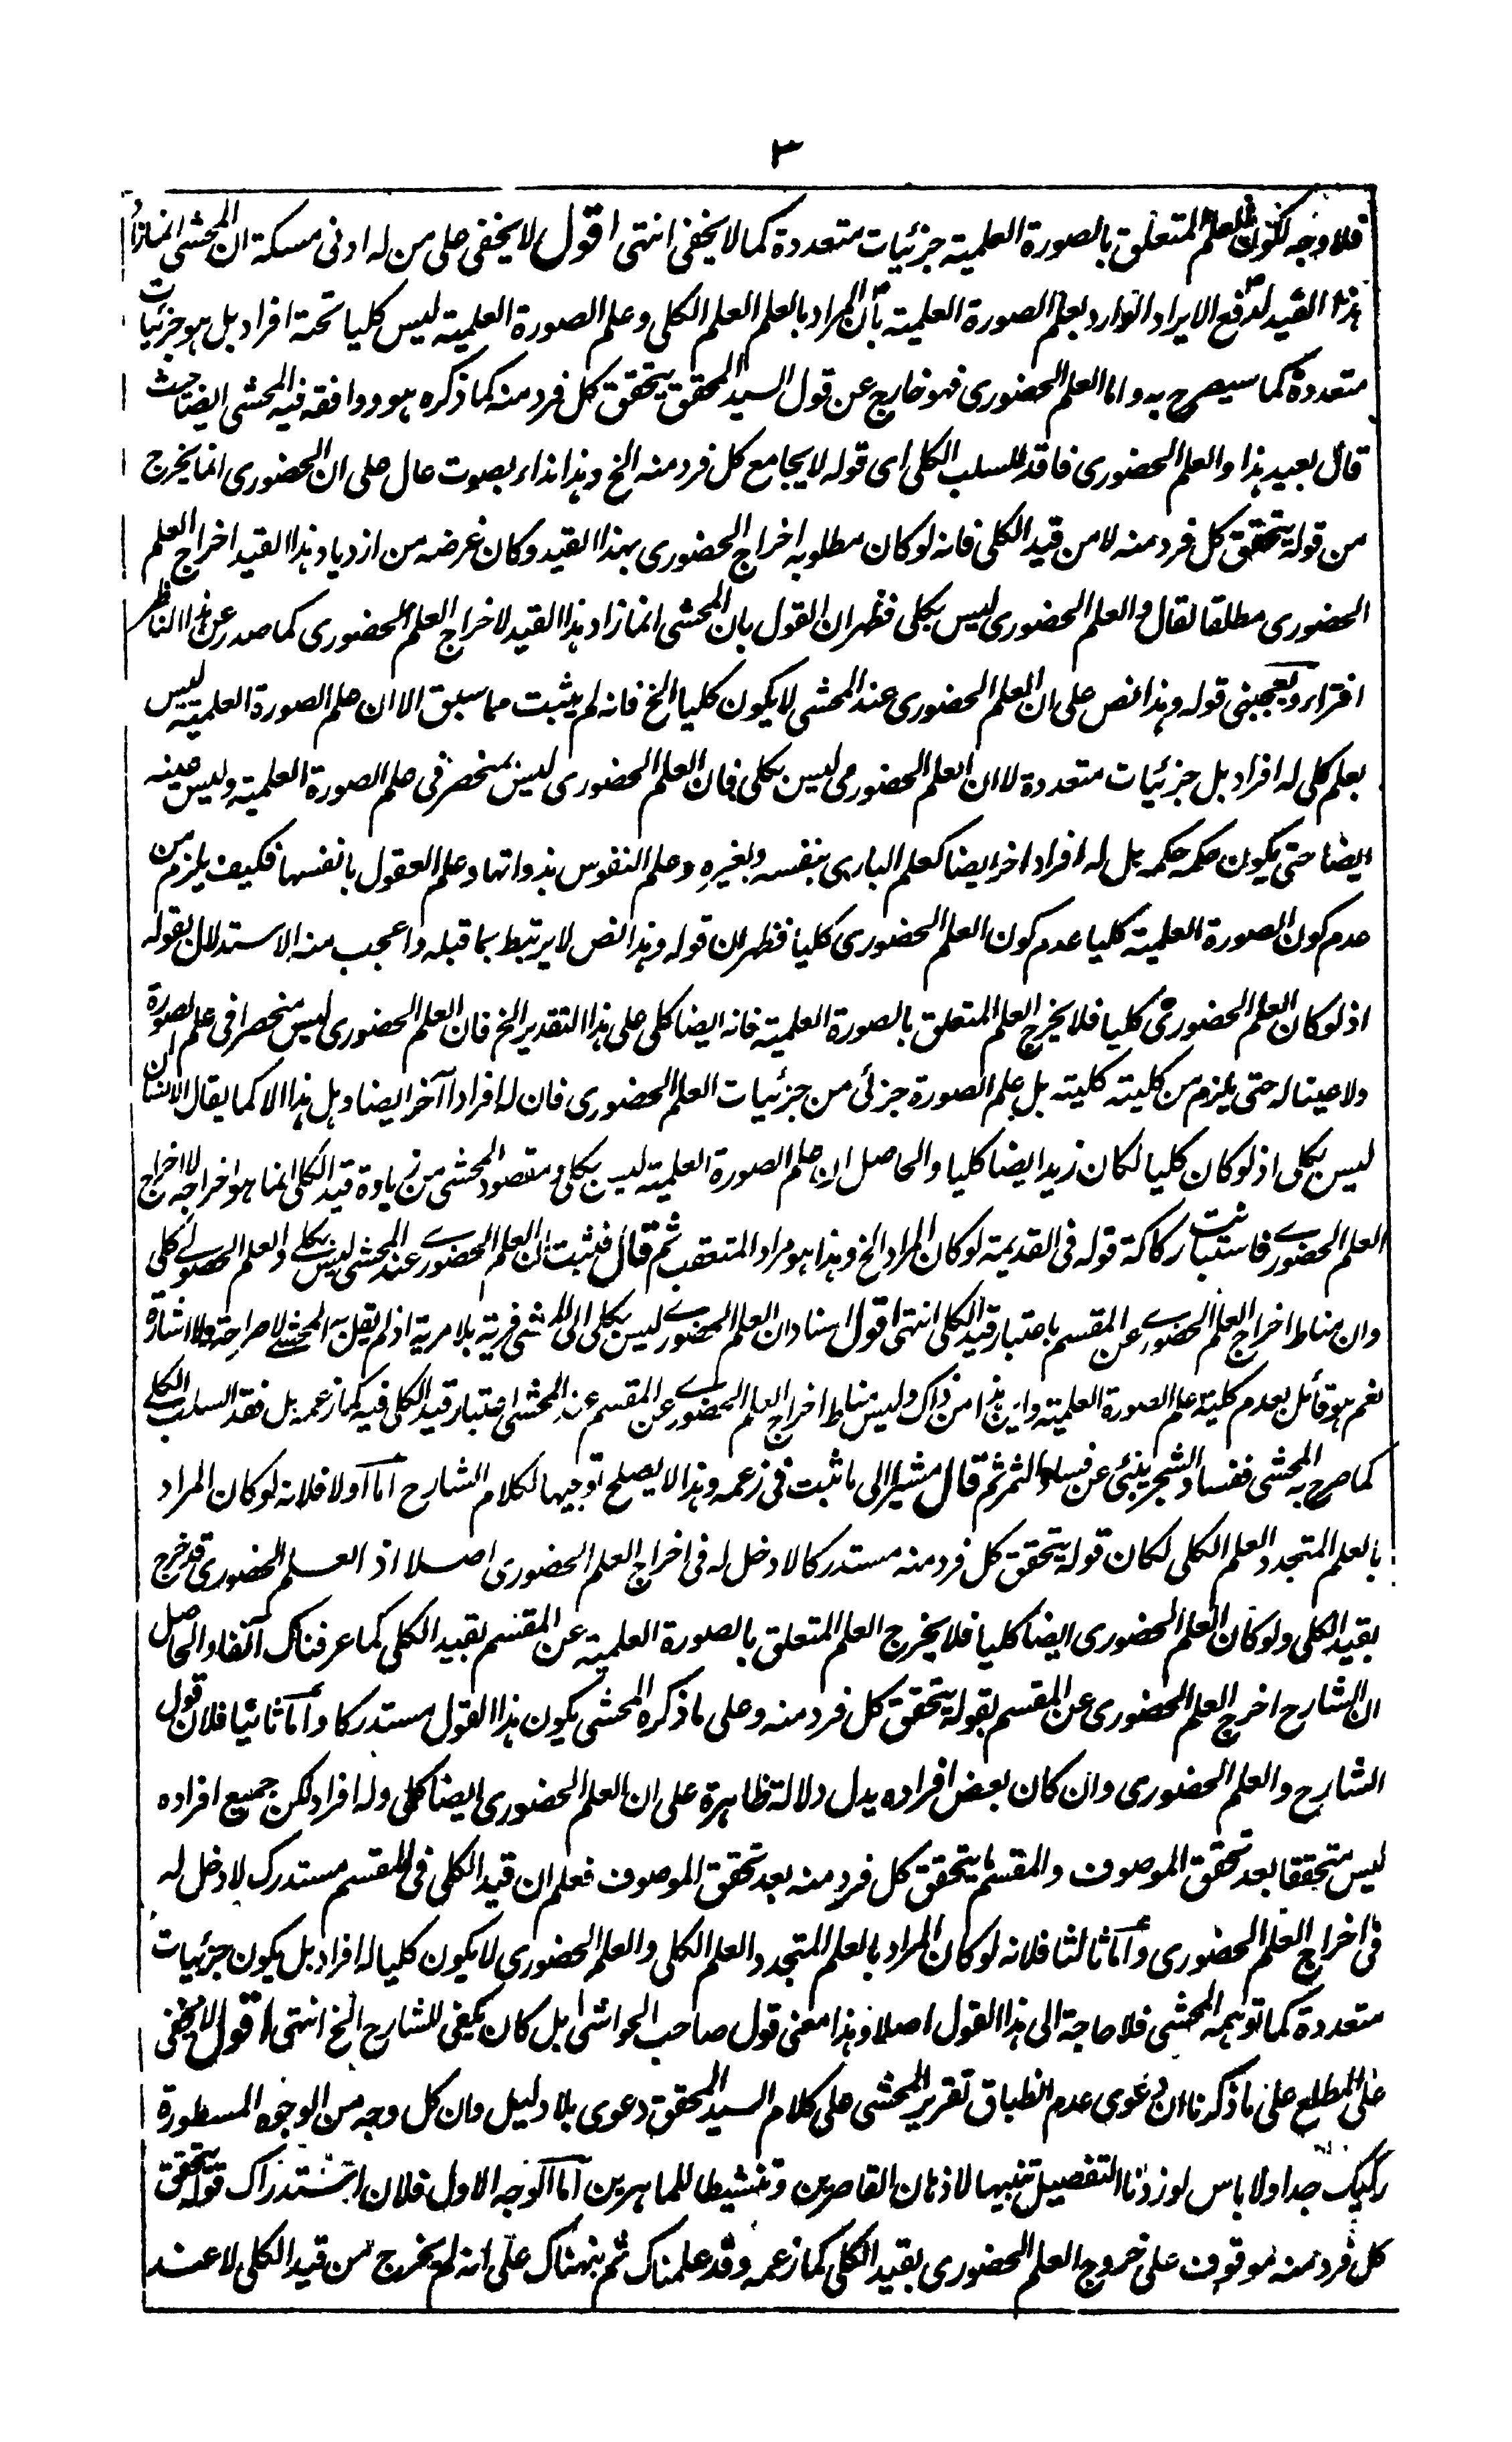 ٣
فلا وجه لكون العلم المتعلق بالصورة العلمية جزئيات متعددة كما لا يخفى انتهى اقول لا يخفى على من له ادنى مسكة ان المحشى انما زاد
هذا القيد لدفع الايراد الوارد بعلم الصورة العلمية بأن المراد بالعلم العلم الكلى وعلم الصورة العلمية ليس كليا تحته افراد بل هو جزئيات
متعددة كما سيصرح به واما العلم الحضورى فهو خارج عن قول السيد المحقق يتحقق كل فرد منه كما ذكره هو ووافقه فيه المحشى ايضا حيث
قال بعيد هذا والعلم الحضورى فاقد للسلب الكلى اى قوله لا يجامع كل فرد منه الخ وهذا نداء بصوت عال على ان الحضورى انما يخرج
من قوله يتحقق كل فرد منه لا من قيد الكلى فانه لو كان مطلوبه اخراج الحضورى بهذا القيد وكان غرضه من ازدياد هذا القيد اخراج العلم
الحضورى مطلقا لقال والعلم الحضورى ليس بكلى فظهر ان القول بان المحشى انما زاد هذا القيد لاخراج العلم الحضورى كما صدر عن هذا الناظر
افتراء ويعجبنى قوله وهذا نص على ان العلم الحضورى عند المحشى لا يكون كليا الخ فانه لم يثبت مما سبق الا ان علم الصورة العلمية ليس
بعلم كلى له افراد بل جزئيات متعددة لا ان العلم الحضورى ليس بكلى فان العلم الحضورى ليس بمنحصر فى علم الصورة العلمية وليس عينه
ايضا حتى يكون حكمه حكمه بل له افراد اخر ايضا كعلم البارى بنفسه وبغيره وعلم النفوس بذواتها وعلم العقول بانفسها فكيف يلزم من
عدم كون الصورة العلمية كليا عدم كون العلم الحضورى كليا فظهر ان قوله وهذا نص لا يرتبط بما قبله واعجب منه الاستدلال بقوله
اذ لو كان العلم الحضورى كليا فلا يخرج العلم المتعلق بالصورة العلمية فانه ايضا كلى على هذا التقدير الخ فان العلم الحضورى ليس منحصرا فى علم الصورة
ولا عينا له حتى يلزم من كليته كليته بل علم الصورة جزئى من جزئيات العلم الحضورى فان له افرادا آخر ايضا وهل هذا الا كما يقال الانسان
ليس بكلى اذ لو كان كليا لكان زيد ايضا كليا والحاصل ان علم الصورة العلمية ليس بكلى ومقصود المحشى من زيادة قيد الكلى انما هو اخراجه لا اخراج
العلم الحضورى فاستبانت ركاكة قوله فى القديمة لو كان المراد الخ وهذا هو مراد المتعقب ثم قال فثبت ان العلم الحضورى عند المحشى ليس بكلى والعلم الحصولى كلى
وان مناط اخراج العلم الحضورى عن المقسم باعتبار قيد الكلى انتهى اقول اسناد ان العلم الحضورى ليس بكلى الى المحشى فرية بلا مرية اذ لم يقل به المحشى لا صراحة ولا اشارة
نعم هو قائل بعدم كلية علم الصورة العلمية واين هذا من ذاك وليس مناط اخراج العلم الحضورى عن المقسم عند المحشى اعتبار قيد الكلى فيه كما زعمه بل فقد السلب الكلى
كما صرح به المحشى ففساد الشجر ينبئ عن فساد الثمر ثم قال مشيرا الى ما ثبت فى زعمه وهذا لا يصلح توجيها لكلام الشارح اما اولا فلانه لو كان المراد
بالعلم المتجدد العلم الكلى لكان قوله يتحقق كل فرد منه مستدركا لا دخل له فى اخراج العلم الحضورى اصلا اذ العلم الحضورى قد خرج
بقيد الكلى ولو كان العلم الحضورى ايضا كليا فلا يخرج العلم المتعلق بالصورة العلمية عن المقسم بقيد الكلى كما عرفناك آنفا والحاصل
ان الشارح اخرج العلم الحضورى عن المقسم بقوله يتحقق كل فرد منه وعلى ما ذكره المحشى يكون هذا القول مستدركا واما ثانيا فلان قول
الشارح والعلم الحضورى وان كان بعض افراده يدل دلالة ظاهرة على ان العلم الحضورى ايضا كلى وله افراد لكن جميع افراده
ليس متحققا بعد تحقق الموصوف والمقسم ما يتحقق كل فرد منه بعد تحقق الموصوف فعلم ان قيد الكلى فى المقسم مستدرك لا دخل له
فى اخراج العلم الحضورى واما ثالثا فلانه لو كان المراد بالعلم المتجدد العلم الكلى والعلم الحضورى لا يكون كليا له افراد بل يكون جزئيات
متعددة كما توهمه المحشى فلا حاجة الى هذا القول اصلا وهذا معنى قول صاحب الحواشى بل كان يكفى للشارح الخ انتهى اقول لا يخفى
على المطلع على ما ذكرنا ان دعوى عدم انطباق تقرير المحشى على كلام السيد المحقق دعوى بلا دليل وان كل وجه من الوجوه المسطورة
ركيك جدا ولا باس لو زدنا التفصيل تنبيها لاذهان القاصرين وتنشيطا للماهرين اما الوجه الاول فلان استدراك قوله يتحقق
كل فرد منه موقوف على خروج العلم الحضورى بقيد الكلى كما زعمه وقد علمناك ثم نبهناك على انه لم يخرج من قيد الكلى لا عند